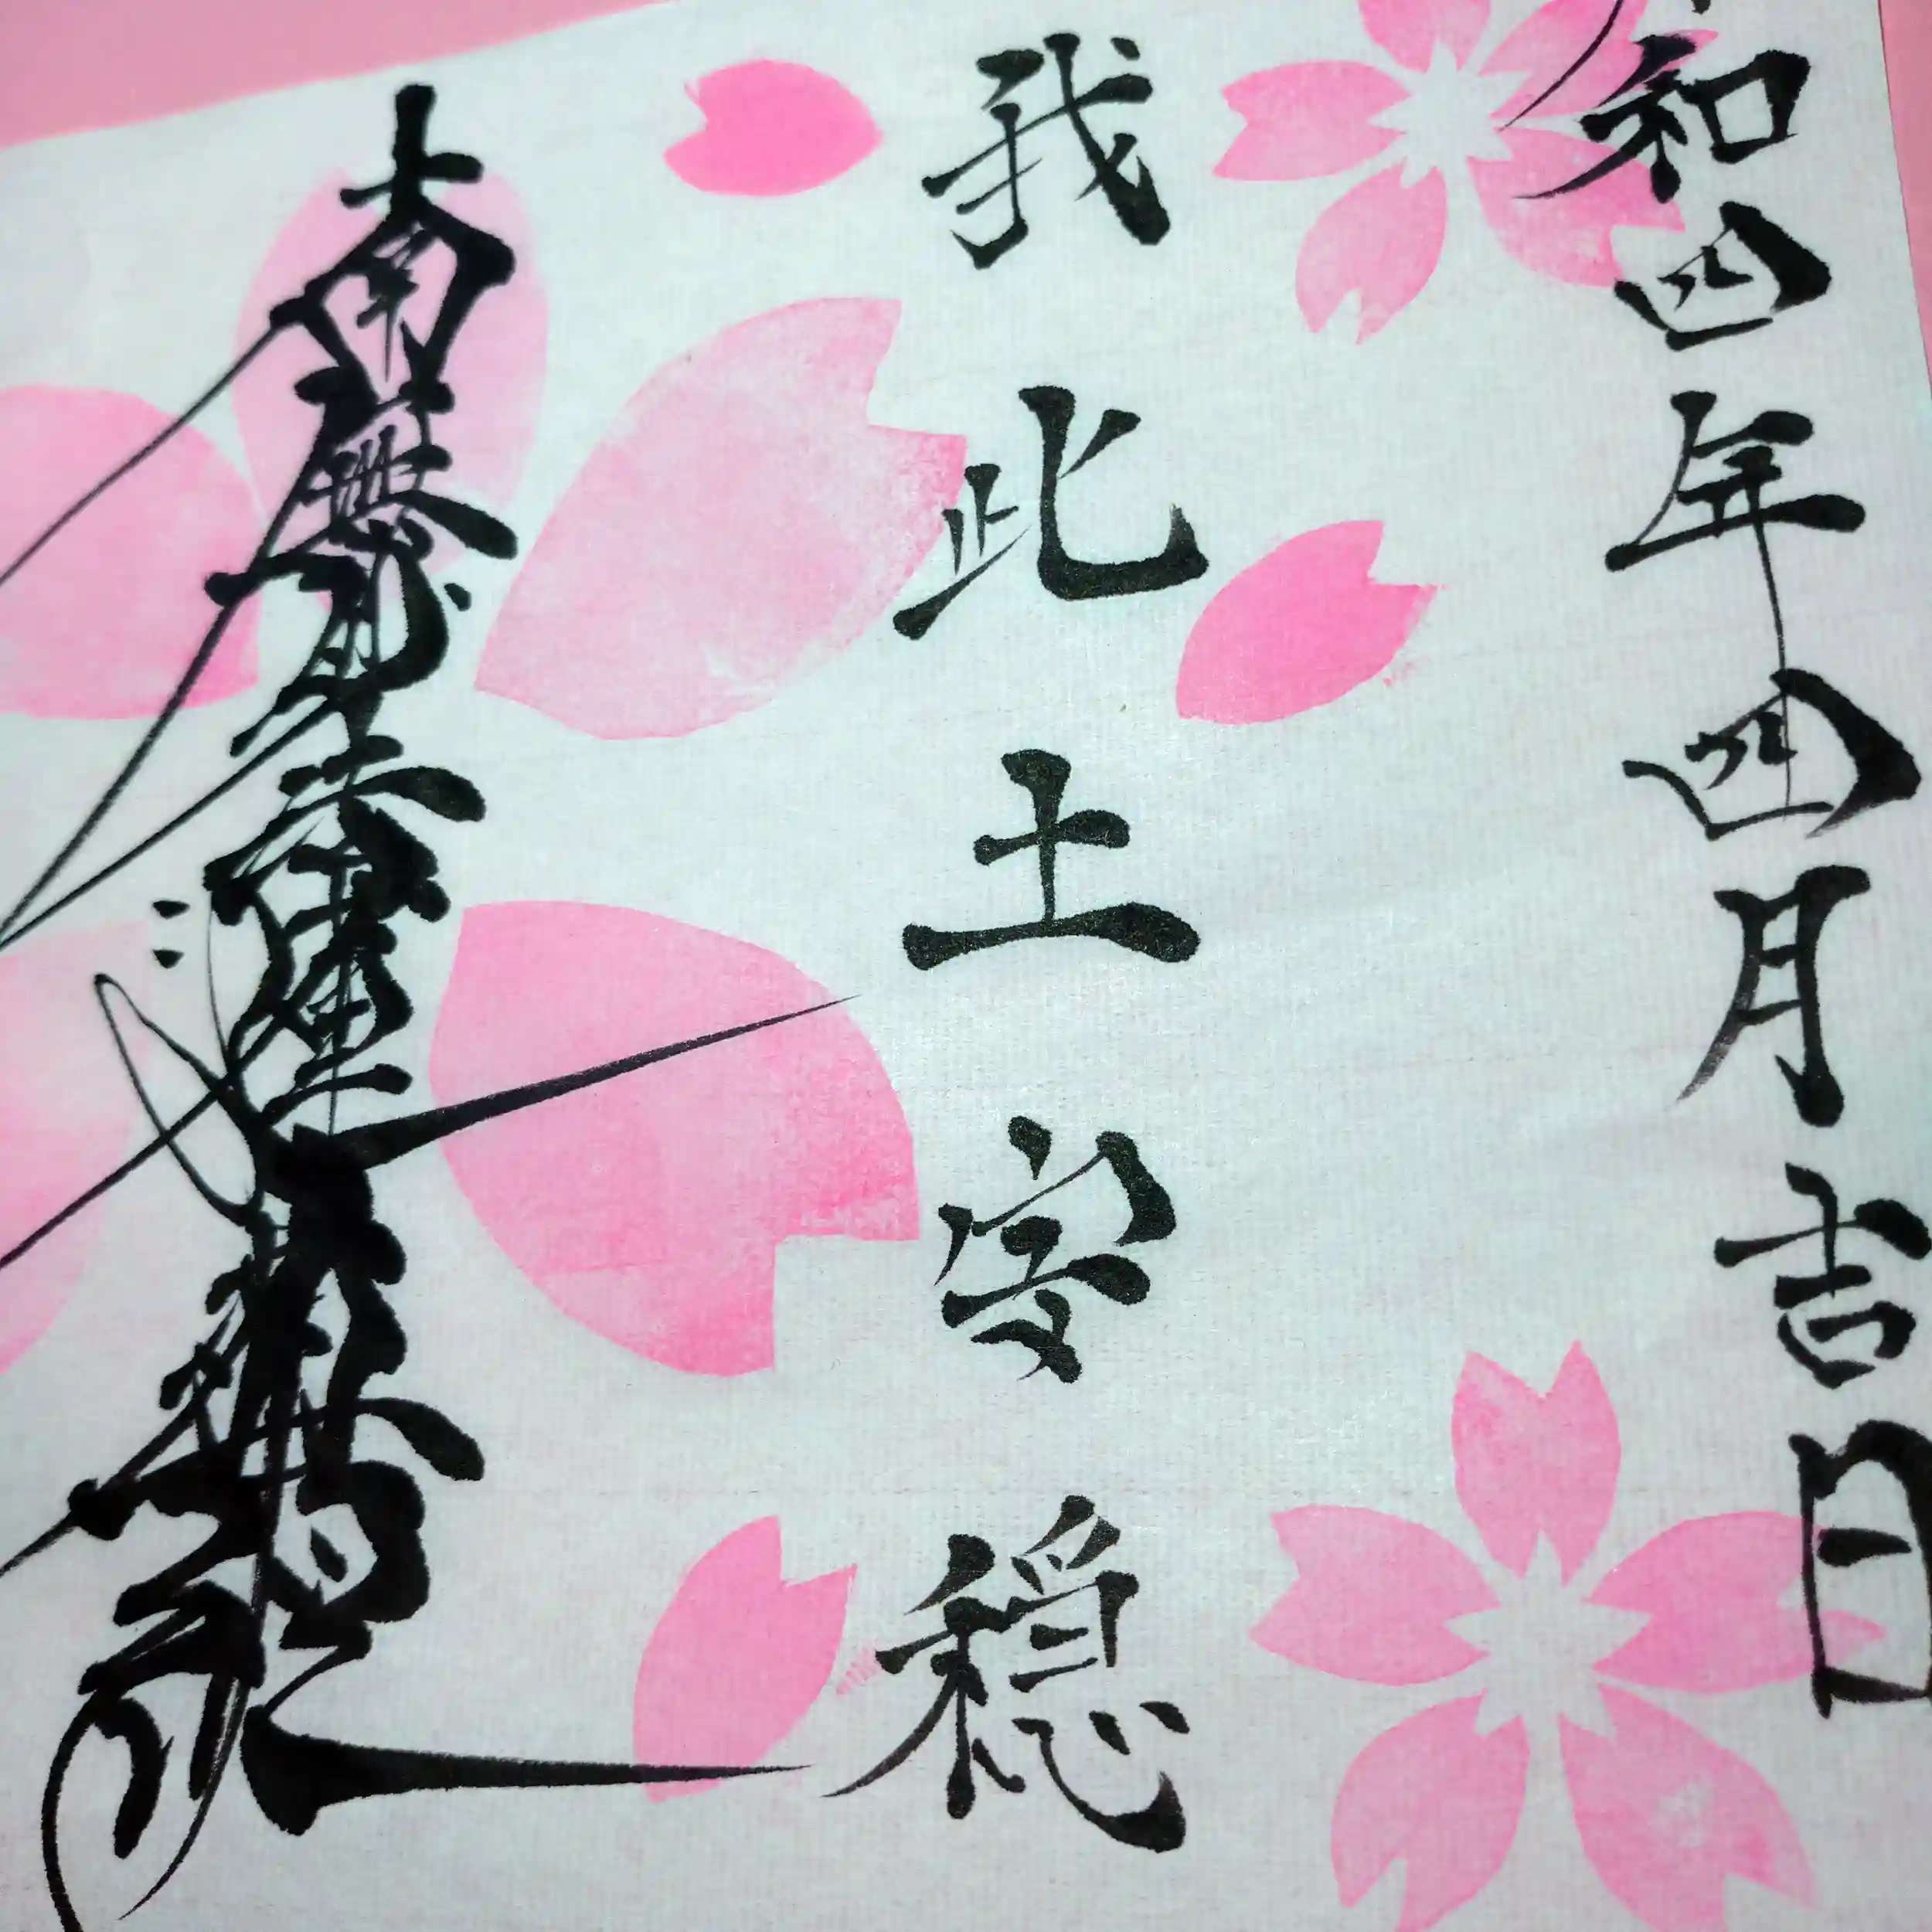 和四年四月吉日
我此土安穏
南無妙法蓮華経